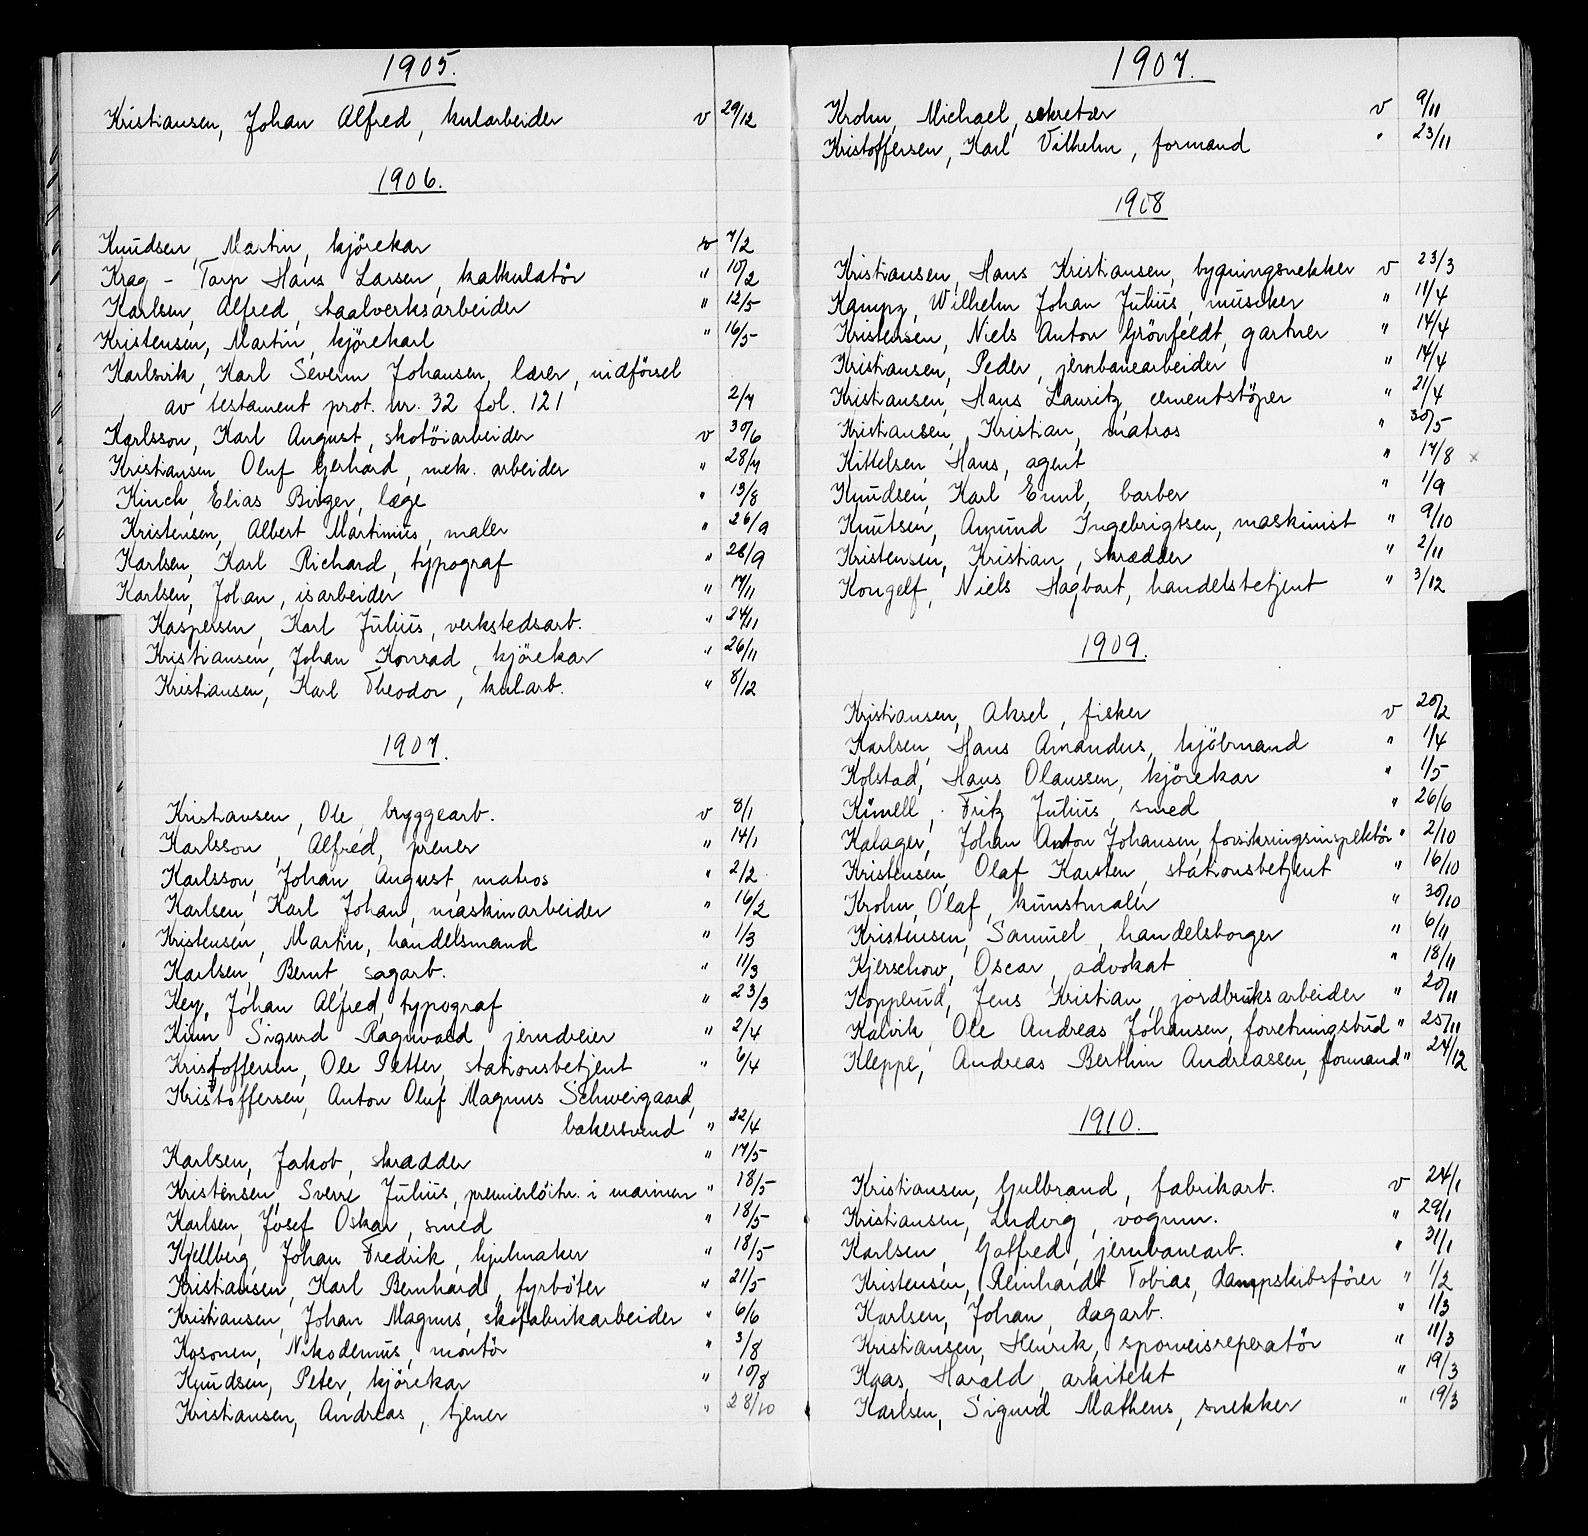 1905.
Kristiansen, Johan Alfred, kularbeider v 29/12
1906.
Knudsen, Martin, kjörekar v 7/2
Krag - Torp Hans Larsen, kalkulatör " 10/2
Karlsen, Alfred, staalverksarbeider " 12/5
Kristensen, Martin, kjörekarl " 16/5
Karlsvik, Karl Severin Johansen, lærer, nidförsel
av testament prot. nr. 32 fol. 121 2/7
Karlsson, Karl August, skotöiarbeider v 30/6
Kristiansen, Oluf Gerhard, mek. arbeider " 28/7
Kinch, Elias Birger, læge " 13/8
Kristensen, Albert Martinius, maler " 26/9
Karlsen, Karl Richard, typograf " 28/9
Karlsen, Johan, isarbeider " 17/11
Kaspersen, Karl Julius, verkstedsarb. " 24/11
Kristiansen, Johan Konrad, kjörekar " 26/11
Kristiansen, Karl Theodor, kularb. " 8/12
1907.
Kristiansen, Ole, bryggearb. v 8/1
Karlsson, Alfred, prener " 14/1
Karlsson, Johan August, matros " 2/2
Karlsen, Karl Johan, maskinarbeider " 16/2
Kristensen, Martin, handelsmand " 1/3
Karlsen, Bernt, sagarb. " 11/3
Key, Johan Alfred, typograf " 23/3
Kinn Sigurd Ragnvald, jerndreier " 2/4
Kristoffersen, Ole Petter, stationsbetjent " 6/4
Kristoffersen, Anton Oluf Magnus Schweigaard,
bakersvend " 22/4
Karlsen, Jakob, skrædder " 17/5
Kristensen, Sverre Julius, premierlöitn. i marinen " 18/5
Karlsen, Josef Oskar, smed " 18/5
Kjellberg, Johan Fredrik, hjulmaker " 18/5
Kristiansen, Karl Bernhard, fyrböter " 21/5
Kristiansen, Johan Magnus, skofabrikarbeider " 6/6
Kosonen, Nikodemus, montör " 3/8
Knudsen, Peter, kjörekar " 10/8
Kristiansen, Andreas, tjener " 28/10
1907.
Krohn, Michael, sekretær v 9/11
Kristoffersen, Karl Vilhelm, formand " 23/11
1908
Kristiansen, Hans Kristiansen, bygningssnekker v 23/3
Kampz, Wilhelm Johan Julius, musiker " 11/4
Kristensen, Niels Anton Grönfeldt, gartner " 14/4
Kristiansen, Peder, jernbanearbeider " 14/4
Kristiansen, Hans Lauritz, cementstöper " 21/4
Kristiansen, Kristian, matros " 30/5
Kittelsen, Hans, agent " 17/8 x
Knudsen, Karl Emil, barber " 1/9
Knutsen, Amund Ingebrigtsen, maskinist " 9/10
Kristensen, Kristian, skrædder " 2/11
Kongelf, Niels Hagbart, handelsbetjent " 3/12
1909.
Kristiansen, Aksel, fisker v 20/2
Karlsen, Hans Amandus, kjöbmand " 1/4
Kolstad, Hans Olaussen, kjörekar " 1/5
Kinell, Fritz Julius, smed " 26/6
Kalager, Johan Anton Johansen, forsikringsinspektör " 2/10
Kristensen, Olaf Karsten, stationsbetjent " 16/10
Krohn, Olaf, kunstmaler " 30/10
Kristensen, Samuel, handelsborger " 6/11
Kjerschow, Oscar, advokat " 18/11
Kopperud, Jens Kristian, jordbruksarbeider " 20/11
Kalvik, Ole Andreas Johansen, foretningsbud " 25/11
Kleppe, Andreas Berthin Andreassen, formand " 24/12
1910.
Kristiansen, Gulbrand, fabrikarb. v 24/1
Kristiansen, Ludvig, vognm. " 29/1
Karlsen, Gotfred, jernbanearb. " 31/1
Kristensen, Reinhardt Tobias, dampskibsförer " 1/2
Karlsen, Johan, dagarb. " 1/3
Kristiansen, Henrik, sporveisreperatör " 11/3
Kaas, Harald, arkitekt " 19/3
Karlsen, Sigurd Matheus, snekker " 19/3